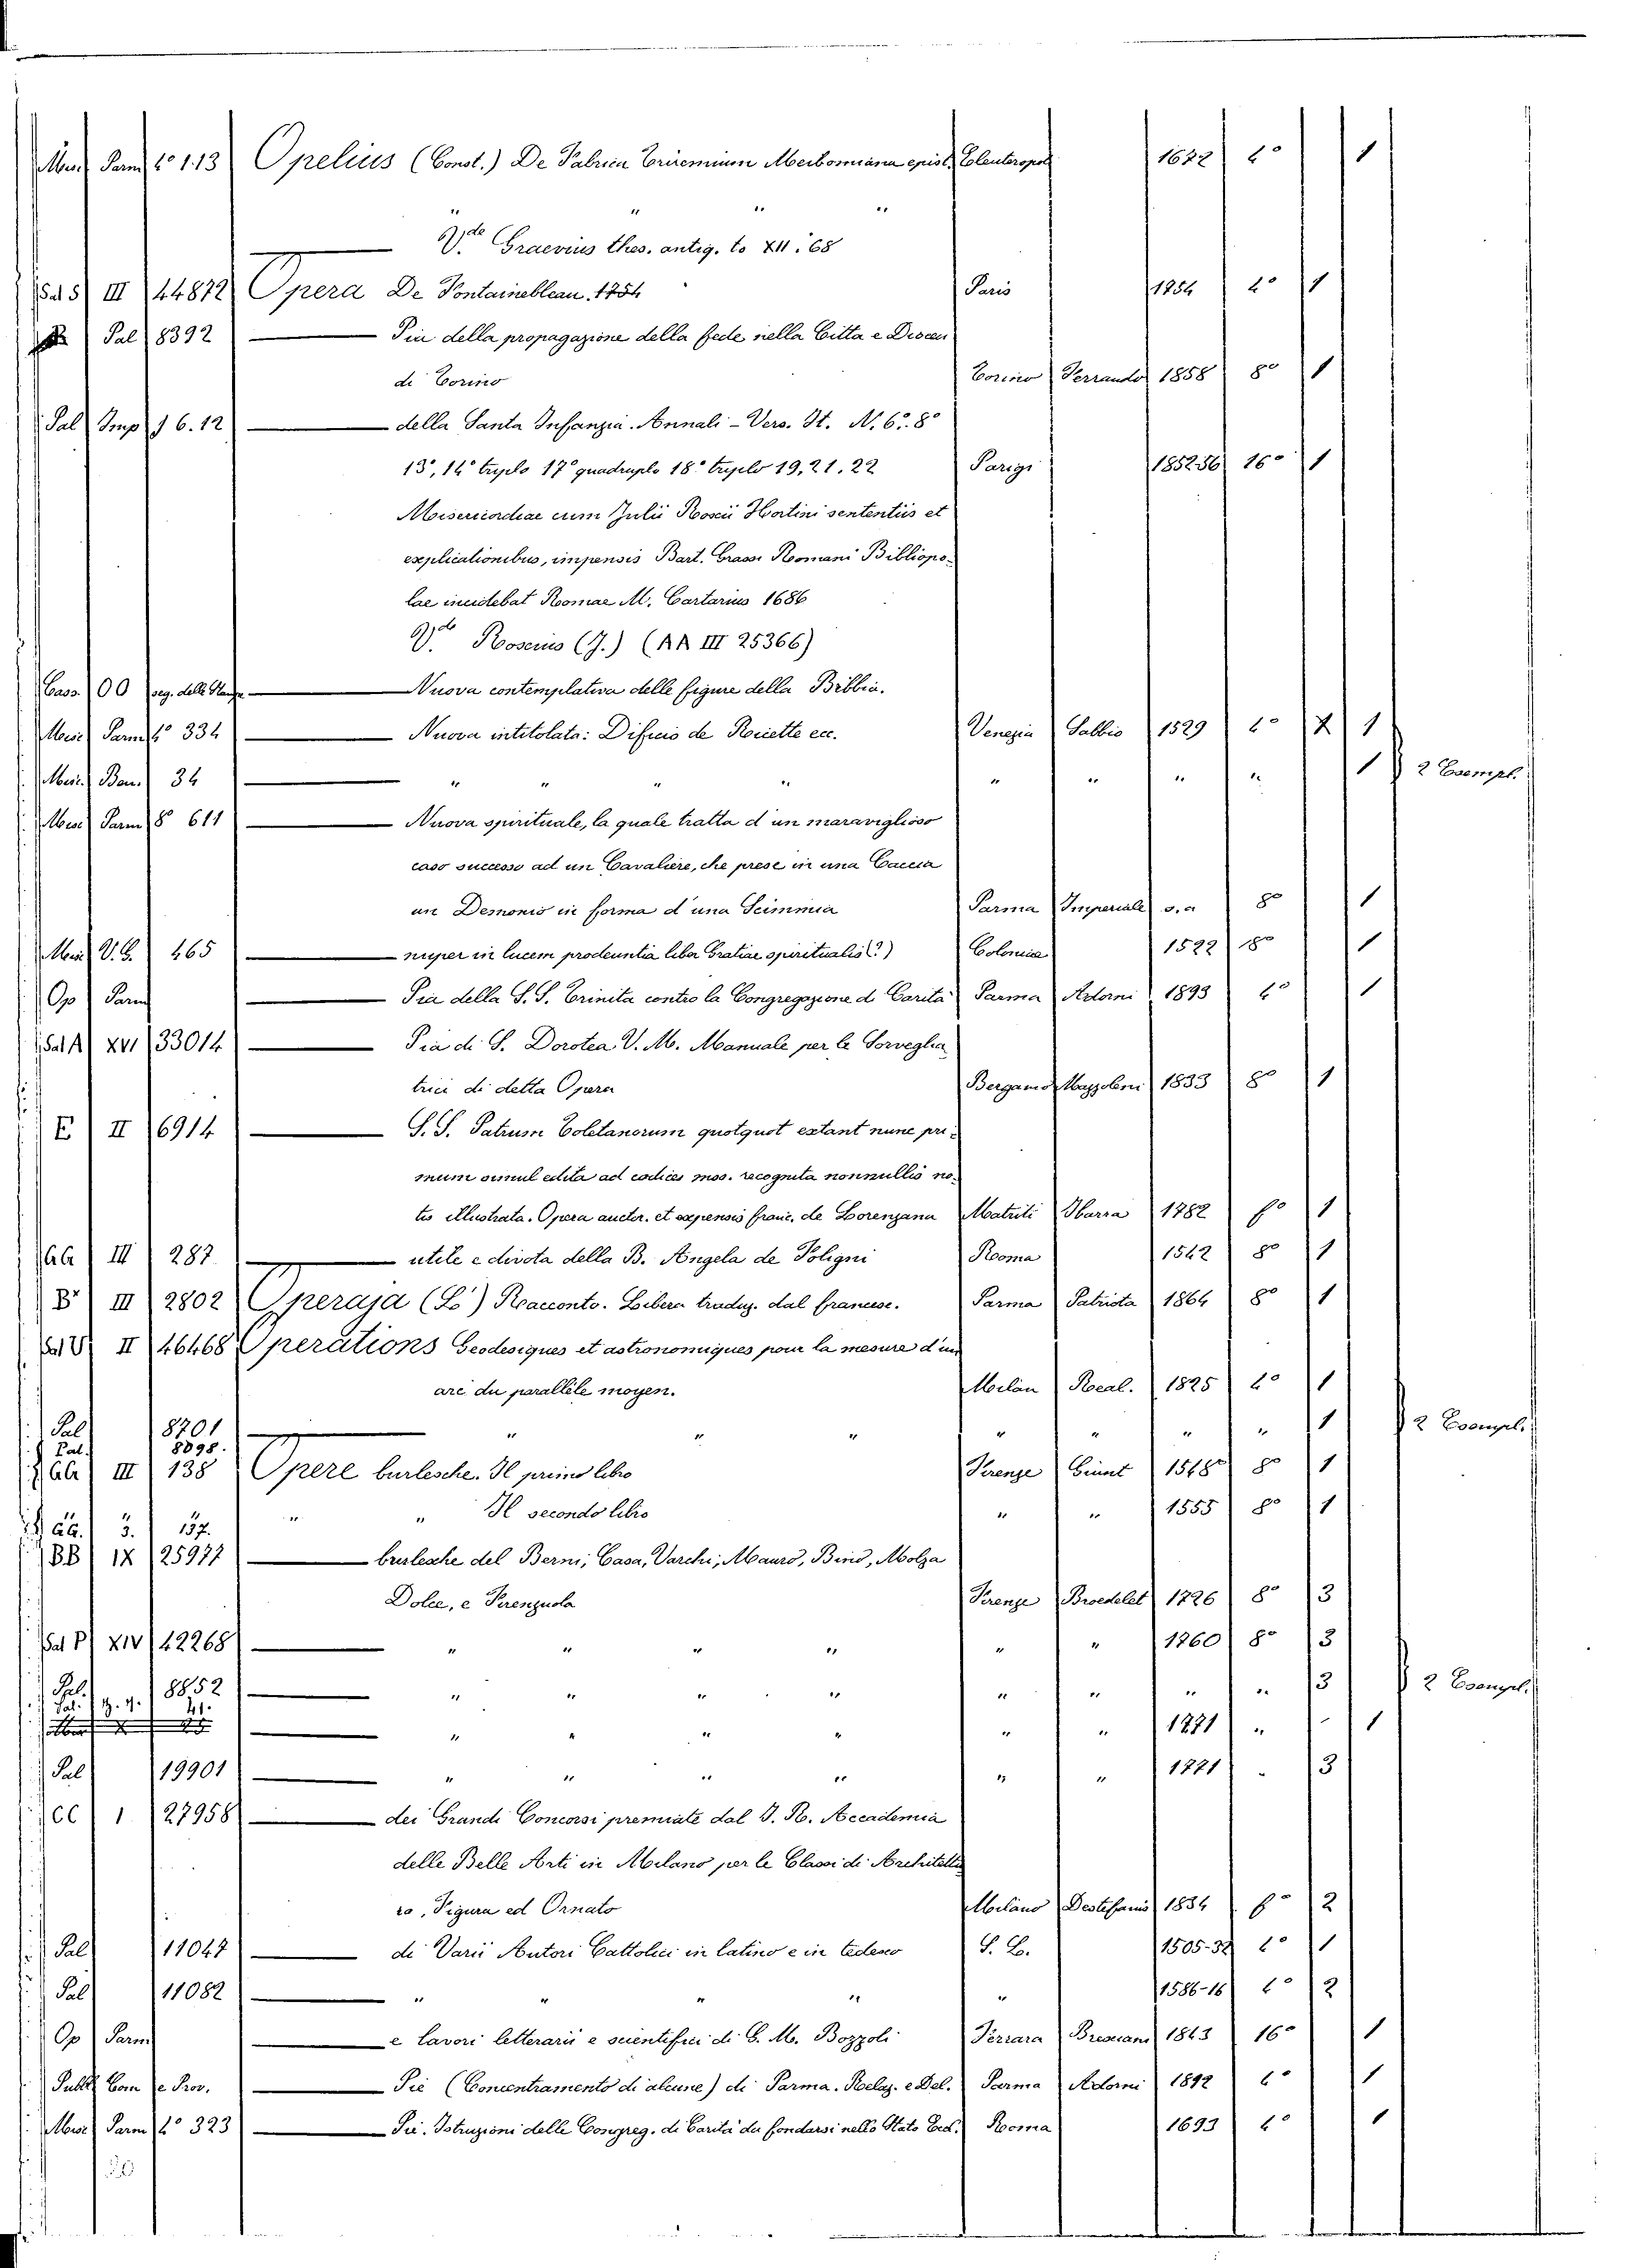 Misc Parm 4° 113 Opelius (Const.) De Fabrica Triremium Meibomiana epist. Eleuteropol 1672 4° 1
" " " "
V.de Graevius thes. antiq. to XII. 68
Sal S III 44872 Opera De Fontainebleau. 1754 Paris 1754 4° 1
Pal 8392 — Pia della propagazione della fede nella Citta e Diocesi
di Torino Torino Ferrando 1858 8° 1
Pal Imp 16.12 — della Santa Infanzia. Annali - Vers. It. N. 6°. 8°
13°, 14° triplo 17° quadruplo 18° triplo 19, 21. 22 Parigi 1852-56 16° 1
Misericordiae cum Julii Roscii Hortini sententiis et
explicationibus, impensis Bart. Grassi Romani Bibliopo-
lae incidebat Romae M. Cartarius 1686
V.de Roscius (J.) (AA III 25366)
Cass. 00 seg. delle Stampe — Nuova contemplativa delle figure della Bibbia.
Misc Parm 4° 334 — Nuova intitolata: Dificio de Ricette ecc. Venezia Sabbio 1529 4° 1
Misc. Bon. 34 — " " " " " " " " 1 2 Esempl.
Misc Parm 8° 611 — Nuova spirituale, la quale tratta d'un maraviglioso
caso successo ad un Cavaliere, che prese in una Caccia
un Demonio in forma d'una Scimmia Parma Imperiale s.a 8° 1
Misc V.G. 465 — nuper in lucem prodeuntia liber Gratiae spiritualis (?) Colonia 1522 18° 1
Op Parm — Pia della S.S. Trinita contro la Congregazione di Carità Parma Adorni 1893 4° 1
Sal A XVI 33014 — Pia di S. Dorotea V. M. Manuale per le Sorveglia
trici di detta Opera Bergamo Mazzoleni 1833 8° 1
E II 6914 — S.S. Patrum Toletanorum quotquot extant nunc pri-
mum simul edita ad codices mss. recognita nonnullis no-
tis illustrata. Opera auctor. et expensis franc. de Lorenzana Matriti Ibarra 1782 f° 1
GG III 287 — utile e divota della B. Angela de Foligni Roma 1542 8° 1
B" III 2802 Operaja (L') Racconto. Libera traduz. dal francese. Parma Patriota 1864 8° 1
Sal V II 46468 Operations Geodesiques et astronomiques pour la mesure d'un
arc du parallèle moyen. Milan Real. 1825 4° 1
Pal 8701 — " " " " " " " 1 2 Esempl.
Pal. 8098.
GG III 138 Opere burlesche. Il primo libro Firenze Giunt 1548 8° 1
GG. 3. 137. " " Il secondo libro " " 1555 8° 1
BB IX 25977 — burlesche del Berni, Casa, Varchi, Mauro, Bino, Molza
Dolce, e Firenzuola Firenze Broedelet 1726 8° 3
Sal P XIV 42268 — " " " " " " 1760 8° 3
Pal. 8852 — " " " " " " " " 3 2 Esempl.
Pal. 41.
— " " " " " " 1771 " 1
Pal 19901 — " " " " " " 1771 " 3
CC 1 27958 — dei Grandi Concorsi premiate dal I. R. Accademia
delle Belle Arti in Milano per le Classi di Architettu
ra, Figura ed Ornato Milano Destefanis 1834 f° 2
Pal 11047 — di Varii Autori Cattolici in latino e in tedesco S. L. 1505-32 4° 1
Pal 11082 — " " " " " 1586-16 4° 2
Op Parm — e lavori letterarii e scientifici di G. M. Bozzoli Ferrara Bresciani 1843 16° 1
Pubbl Com e Prov. — Pie (Concentramento di alcune) di Parma. Relaz. e Del. Parma Adorni 1892 4° 1
Misc Parm 4° 323 — Pie. Istruzioni delle Congreg. di Carità da fondarsi nello Stato Eccl. Roma 1693 4° 1